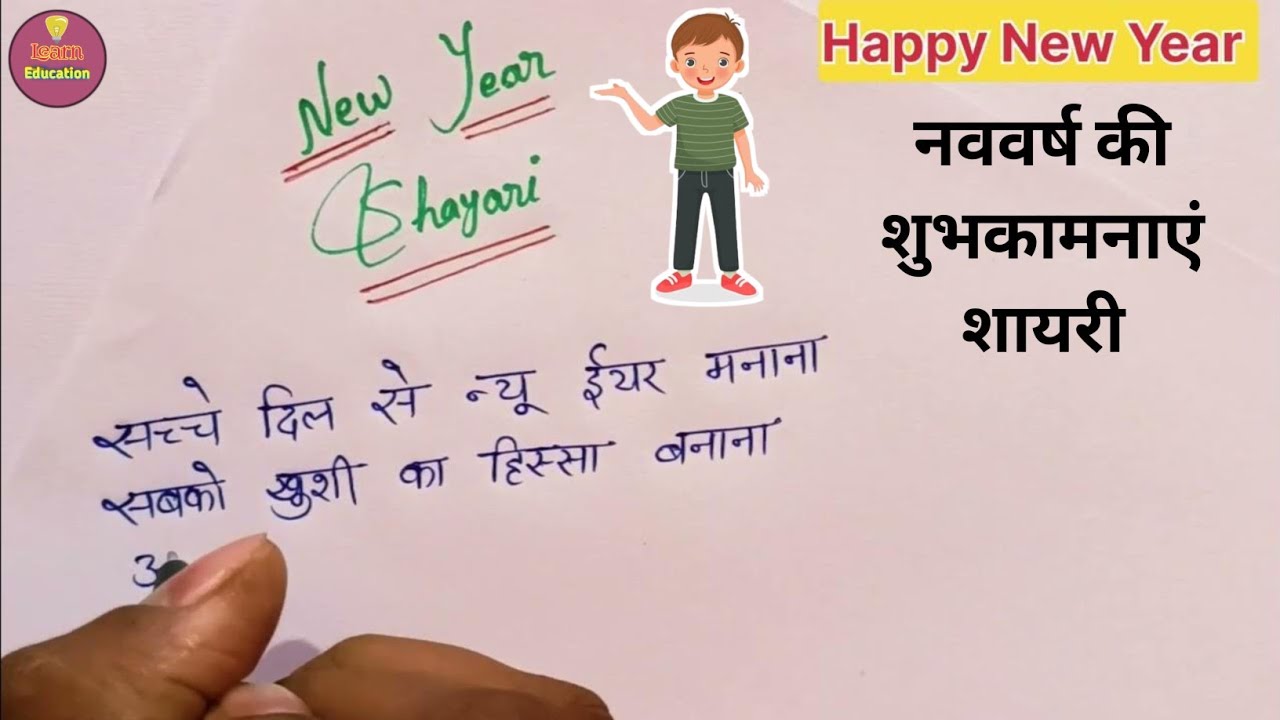 Learn
Education
New Year
Shayari
Happy New Year
नववर्ष की
शुभकामनाएं
शायरी
सच्चे दिल से न्यू ईयर मनाना
सबको खुशी का हिस्सा बनाना